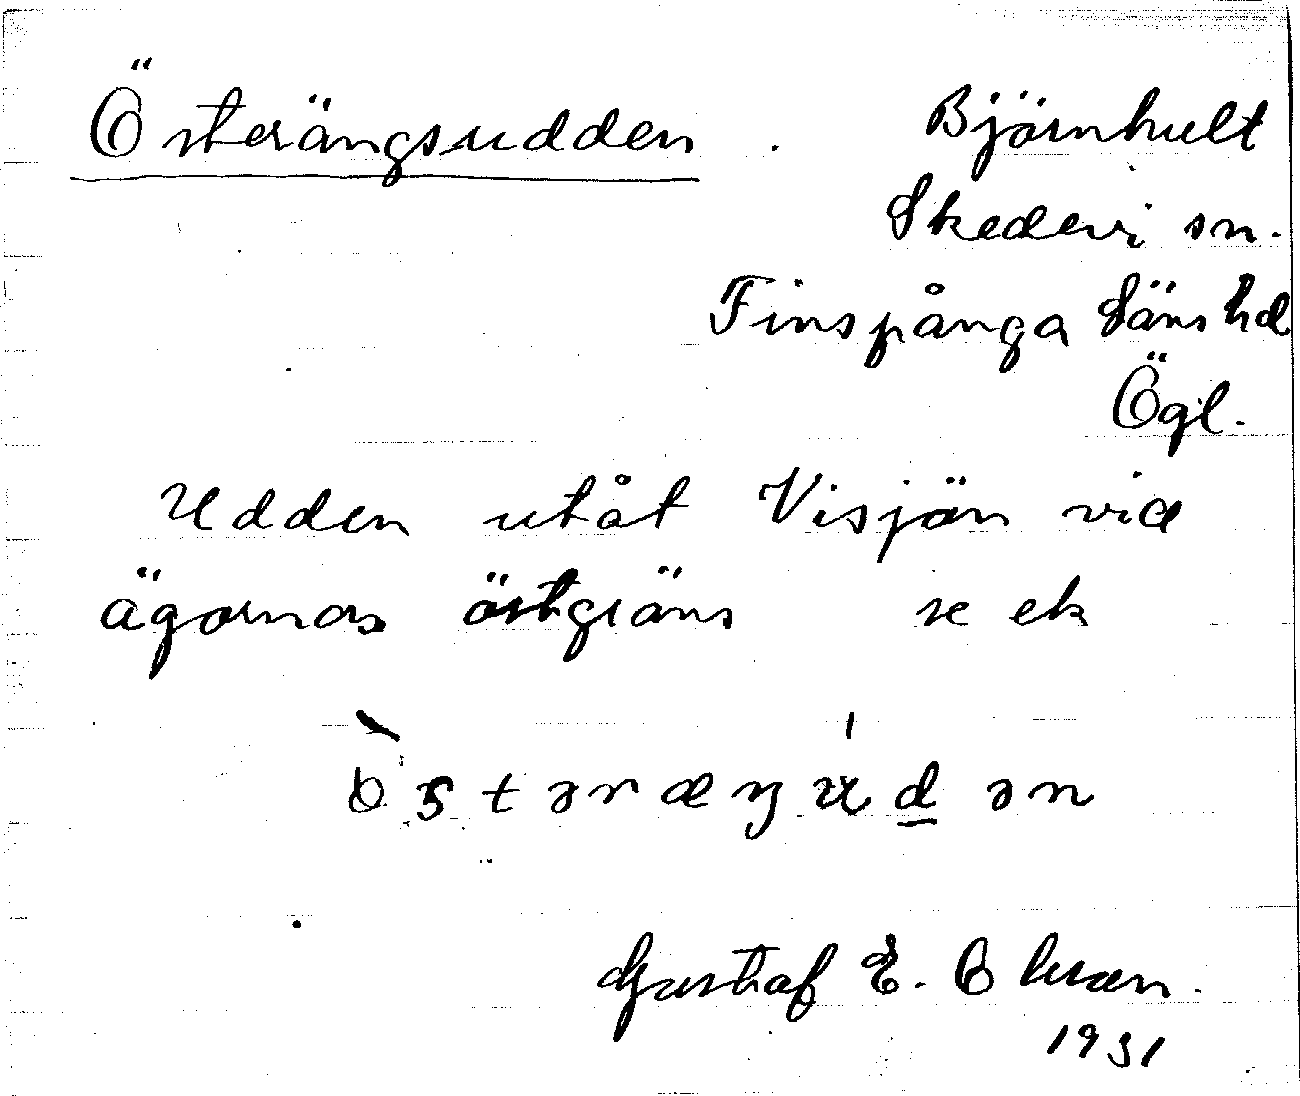 Österängsudden. Björnhult
Skedevi sn.
Finspånga läns hd
Ögl.
Udden utåt Visjön vid
ägornas östgräns se ek
Gustaf E. Olsson.
1931